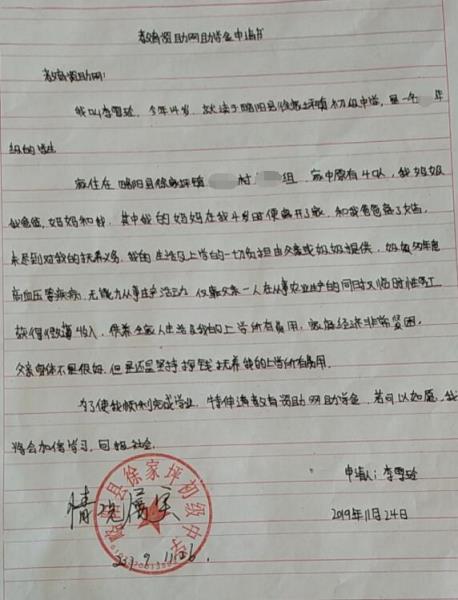 教育资助网助学金申请书
教育资助网:
我叫李雪玲,今年14岁,就读于略阳县徐家坪镇初级中学,是一名 年
级的学生
家住在略阳县徐家坪镇 村 组,家中原有4口人,我奶奶
我爸爸,妈妈和我,其中我的妈妈在我4岁时便离开了家,和我爸爸离了婚,
未尽到对我的抚养义务,我的生活及上学的一切负担由父亲或奶奶提供,奶奶年患
高血压等疾病,无能力从事生产活动,仅靠父亲一人在从事农业生产的同时又临时性务工
获得微薄收入,供养全家人生活及我的上学所有费用,家庭经济非常贫困,
父亲身体不是很好,但是还是坚持挣钱抚养我的上学所有费用.
为了使我顺利完成学业,特申请教育资助网助学金,若可以如愿,我
将会加倍学习,回报社会.
申请人:李雪玲
2019年11月24日
略阳县徐家坪初级中学
情况属实